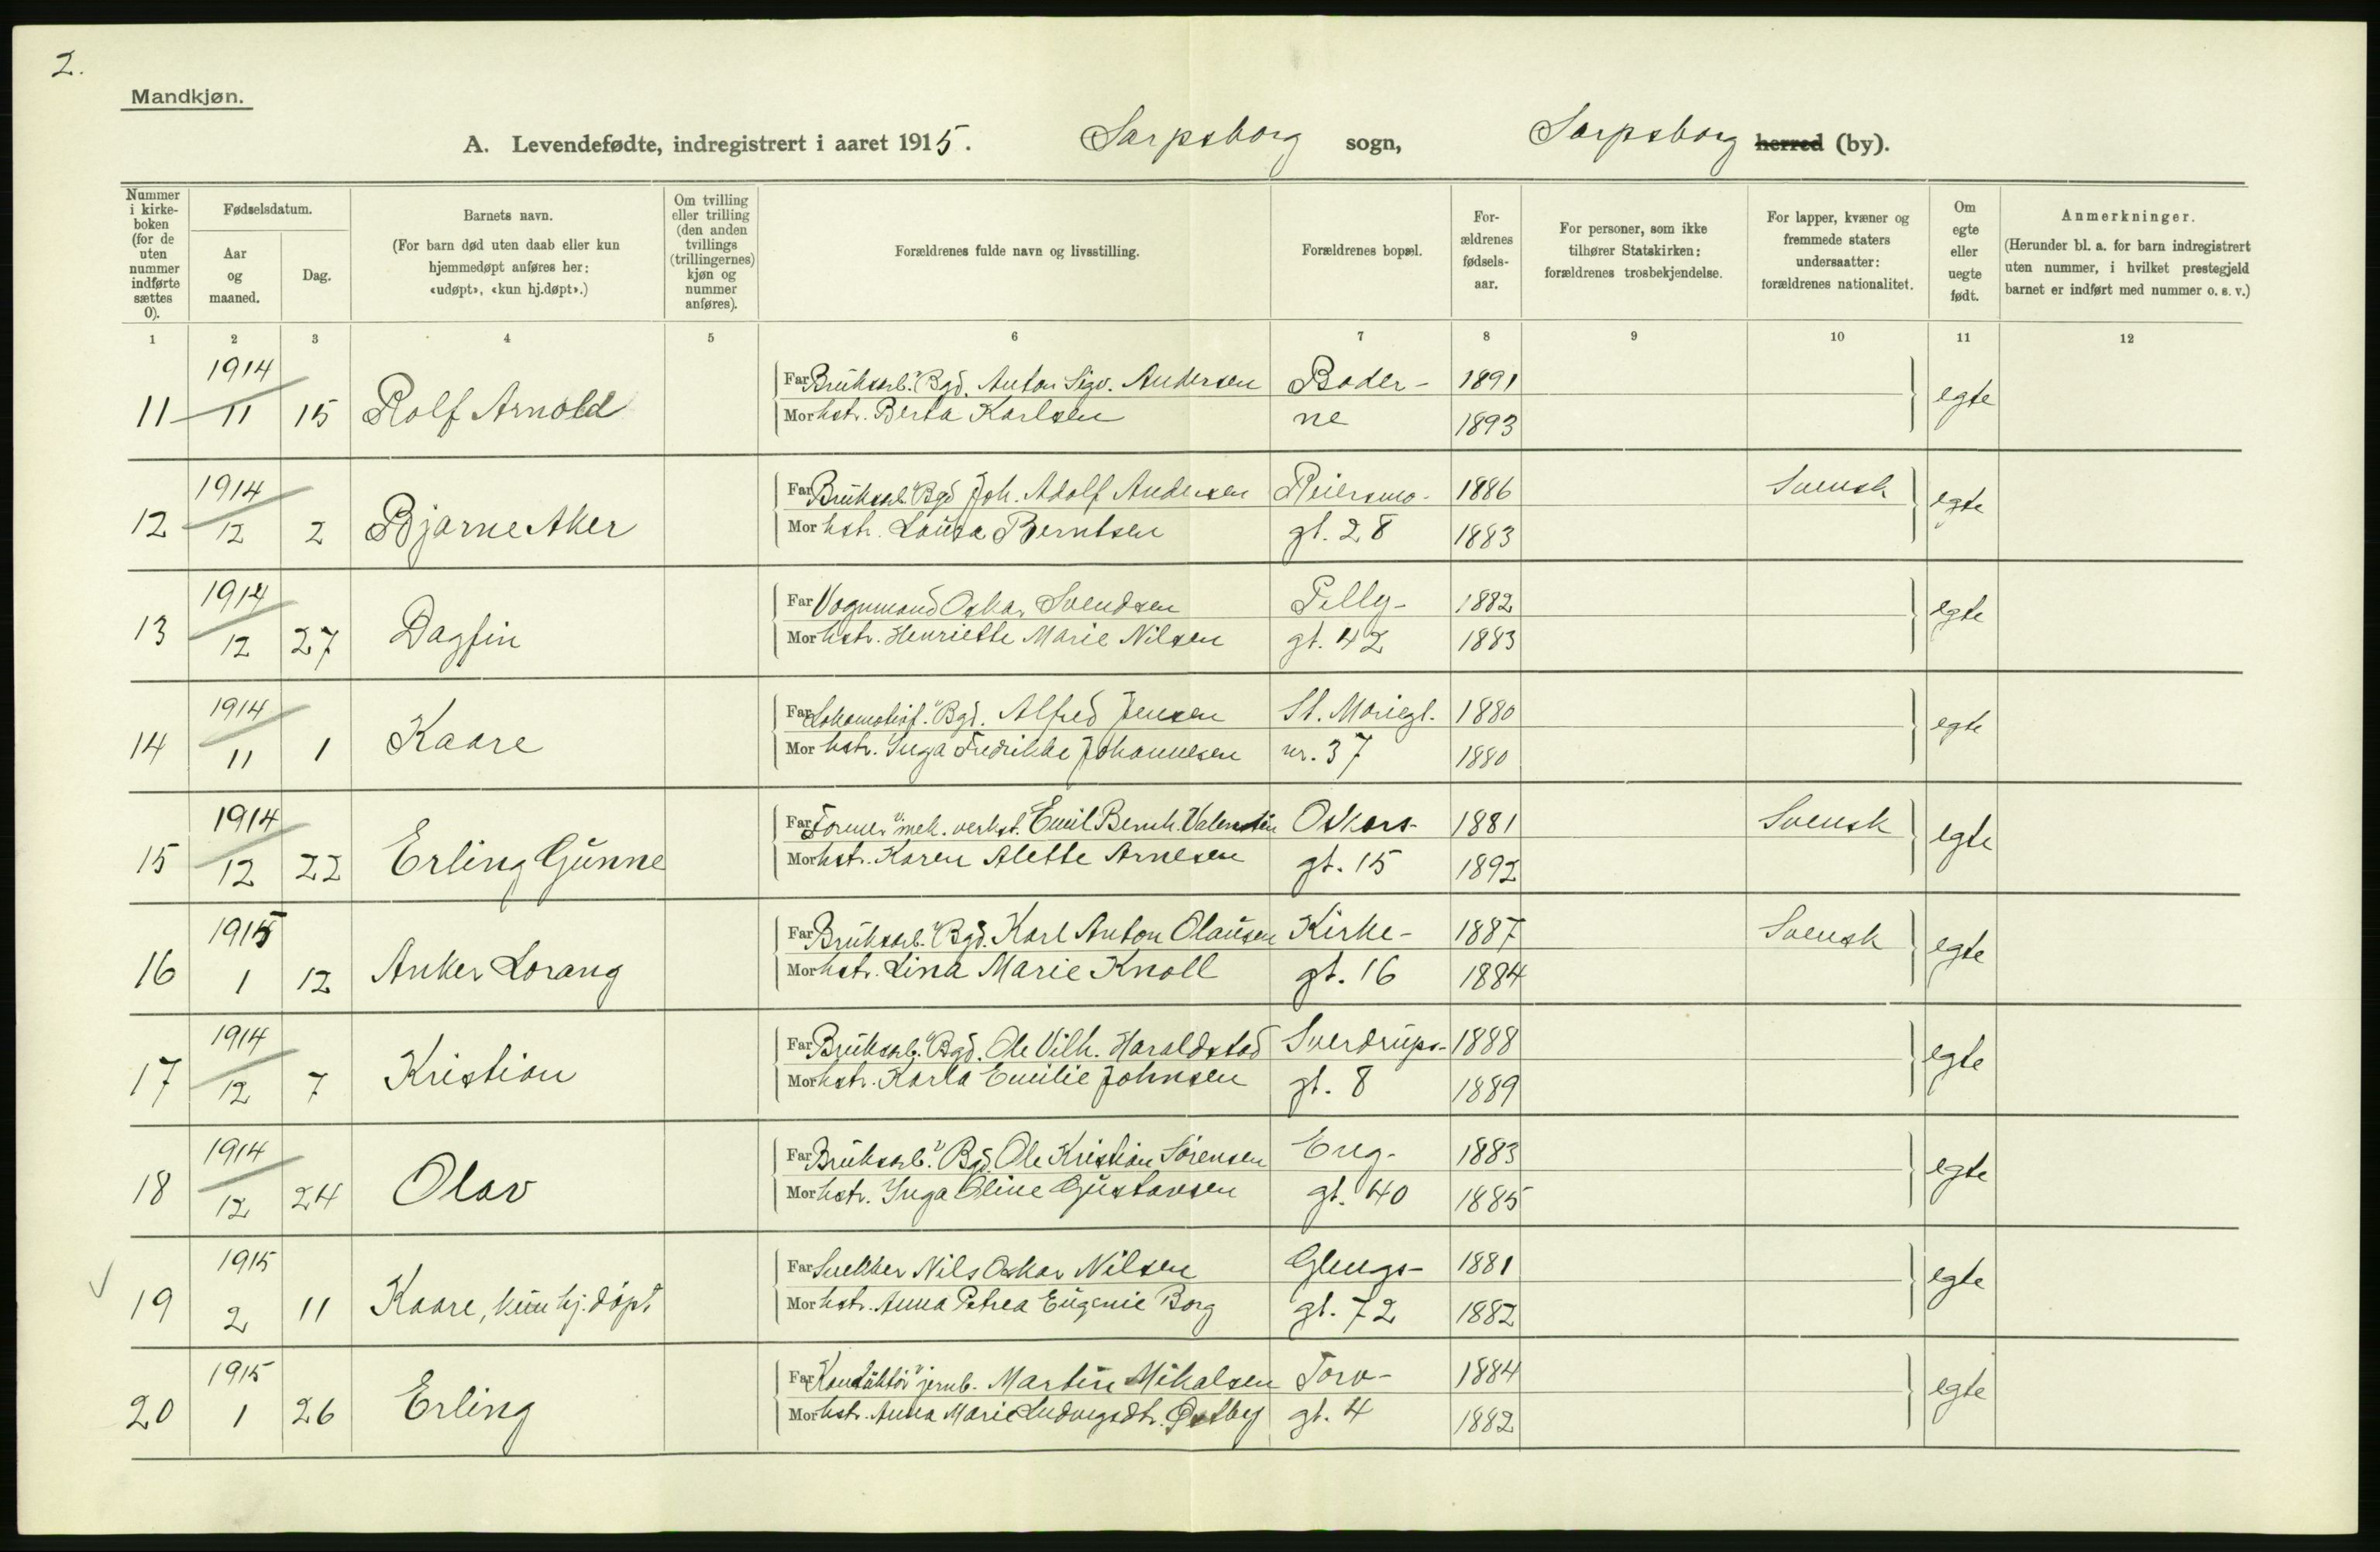 2.
Mandkjøn.
A. Levendefødte, indregistrert i aaret 1915. Sarpsborg sogn, Sarpsborg herred (by).
Nummer i kirkeboken (for de uten nummer indførte sættes 0).
Fødselsdatum.
Aar og maaned.
Dag.
Barnets navn.
(For barn død uten daab eller kun hjemmedøpt anføres her: «udøpt», «kun hj.døpt».)
Om tvilling eller trilling (den anden tvillings (trillingernes) kjøn og nummer anføres).
Forældrenes fulde navn og livsstilling.
Forældrenes bopæl.
For-ældrenes fødsels-aar.
For personer, som ikke tilhører Statskirken: forældrenes trosbekjendelse.
For lapper, kvæner og fremmede staters undersaatter: forældrenes nationalitet.
Om egte eller uegte født.
Anmerkninger.
(Herunder bl. a. for barn indregistrert uten nummer, i hvilket prestegjeld barnet er indført med nummer o. s. v.)
1 2 3 4 5 6 7 8 9 10 11 12
1914 Far Brüksarb. "Bgd. Anton Sigv. Andersen Boder- 1891
11 11 15 Rolf Arnold Mor hstr. Berta Karlsen ne 1893 egte
1914 Far Brüksarb. "Bgd Joh. Adolf Andersen Reiersmo- 1886 Svensk
12 12 2 Bjarne Aker Mor hstr. Louisa Berntsen gt. 28 1883 egte
1914 Far Vognmand Oskar Svendsen Pelly- 1882
13 12 27 Dagfin Mor hstr. Henriette Marie Nilsen gt. 42 1883 egte
1914 Far Lokomotivf. "Bgd. Alfred Jensen St. Mariegt. 1880
14 11 1 Kaare Mor hstr. Inga Fredrikke Johannesen nr. 37 1880 egte
1914 Far Former "mek. verkst. Emil Bernh. Valentin Oskars- 1881 Svensk
15 12 22 Erling Günne Mor hstr. Karen Alette Arnesen gt. 15 1892 egte
1915 Far Brüksarb. "Bgd. Karl Anton Olaüsen Kirke- 1887 Svensk
16 1 12 Anker Lorang Mor hstr. Lina Marie Knoll gt. 16 1884 egte
1914 Far Brüksarb. "Bgd. Ole Vilh. Haraldstad Sverdrüps- 1888
17 12 7 Kristian Mor hstr. Karla Emilie Johnsen gt. 8 1889 egte
1914 Far Brüksarb. "Bgd. Ole Kristian Sörensen Eng- 1883
18 12 24 Olav Mor hstr. Inga Oline Güstavsen gt. 40 1885 egte
1915 Far Snekker Nils Oskar Nilsen Glengs- 1881
19 2 11 Kaare, kün hj. döpt Mor hstr. Anna Petrea Eügenie Borg gt. 72 1882 egte
1915 Far Kondüktör "jernb. Martin Mikalsen Torv- 1884
20 1 26 Erling Mor hstr. Anna Marie Ludvigsdtr. Østby gt. 4 1882 egte